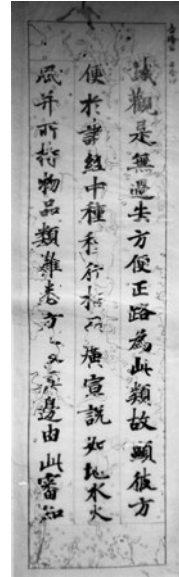 觀是無邊失方便正路為此類故顯彼方
便於諸經中種種行相廣宣說如地水火
風并所持物品類難悉方無邊由此審知